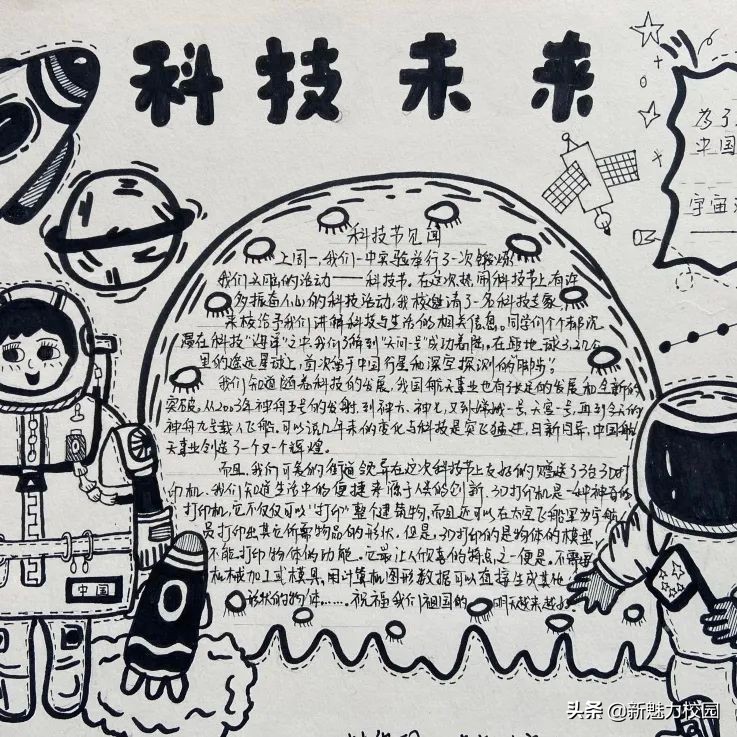 科技未来
为了
中国
宇宙
科技节见闻
上周一,我们一中实验举行了一次锻炼
我们头脑的活动——科技节。在这次热闹科技节上,有许
多振奋人心的科技活动,我校邀请了一名科技专家
来校给予我们讲解科技与生活的相关信息。同学们个个都沉
浸在科技"海洋"之中,我们了解到"天问一号"成功着陆。在距地球3.2亿公
里的遥远星球上,首次留下中国行星和深空探测的"脚步"。
我们知道随着科技的发展,我国航天事业也有了长足的发展和全新的
突破。从2003年神舟五号的发射,到神六、神七,又到嫦娥一号、天宫一号,再到今天的
神舟九号载人飞船。可以说几年来的变化与科技是突飞猛进,日新月异,中国航
天事业创造了一个又一个辉煌。
而且,我们可美的街道领导在这次科技节上友好的赠送了3台3D打
印机,我们知道生活中的便捷来源于人类的创新,3D打印机是一种神奇的
打印机,它不仅仅可以"打印"整个建筑物,而且还可以在太空飞船里为宇航
员打印出其它所需物品的形状,但是,3D打印的是物体的模型,
不能打印物体的功能。它最让人欣喜的特点之一便是,不需要
机械加工或模具,用计算机图形数据可以直接生成其他
形状的物体……祝福我们祖国的明天越来越好
中国
头条 @新魅力校园